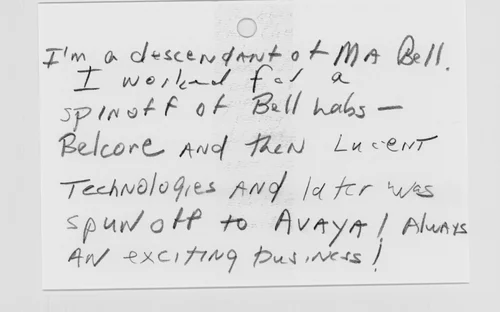 I'm a descendant of MA Bell.
I worked for a
spinoff of Bell Labs —
Belcore and then Lucent
Technologies and later was
spun off to AVAYA! Always
an exciting business!